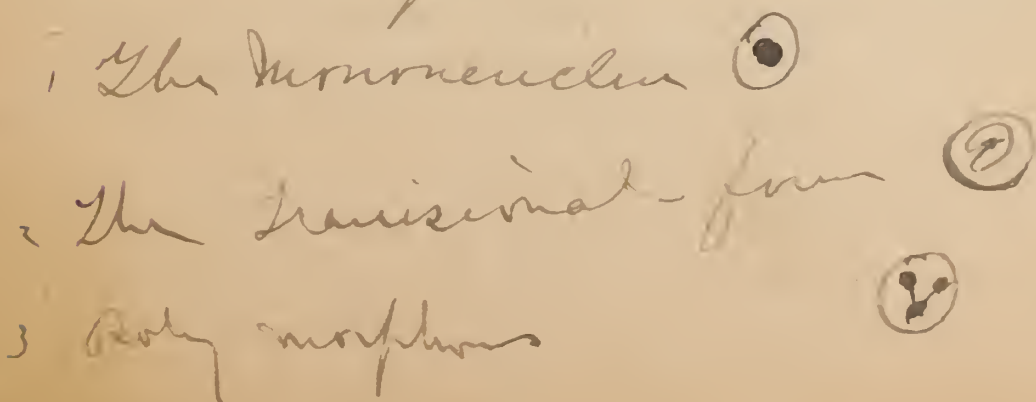 1 The Mononuclear
2 The transisional form
3 Poly morphous